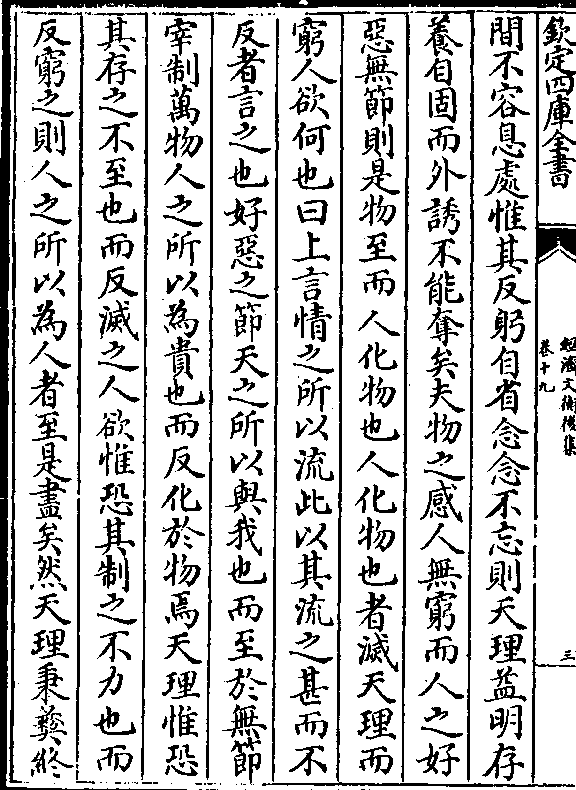 欽定四庫全書
經濟文衡後集
卷十九
三
間不容息處惟其反躬自省念念不忘則天理益明存
養自固而外誘不能奪矣夫物之感人無窮而人之好
惡無節則是物至而人化物也人化物也者滅天理而
窮人欲何也曰上言情之所以流此以其流之甚而不
反者言之也好惡之節天之所以與我也而至於無節
宰制萬物人之所以為貴也而反化於物焉天理惟恐
其存之不至也而反滅之人欲惟恐其制之不力也而
反窮之則人之所以為人者至是盡矣然天理秉彝終